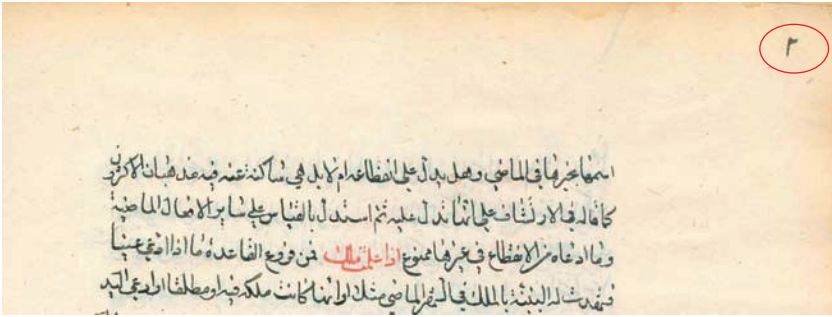 ٢
اسمها بخبرها في الماضي وهل يدل على انقطاعه ام لا بل هي ساكتة عنه فيه مذهبان الاكثرون
كما قاله في الارتشاف على انها تدل عليه ثم استدل بالقياس على ساير الافعال الماضية
وما ادعاه من الانقطاع في غيرها ممنوع اذا علمت ذلك فمن فروع القاعدة ما اذا ادعى عينا
فشهدت له البينة بالملك في الشهر الماضي مثلا او انها كانت ملكه فيه او مطلقا او ادعى اليد